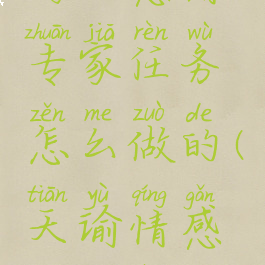 zhuān jiā rèn wù
专家任务
zěn me zuò de
怎么做的(
tiān yù qíng gǎn
天谕情感